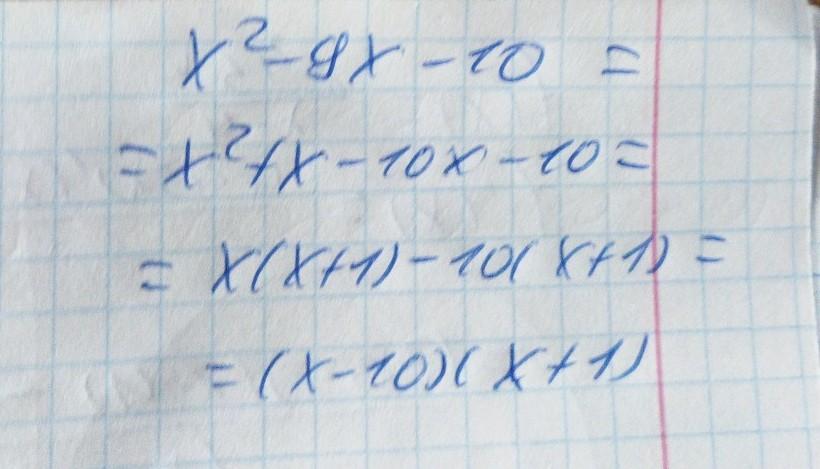 x² - 9x - 10 =
= x² + x - 10x - 10 =
= x(x+1) - 10(x+1) =
= (x-10)(x+1)